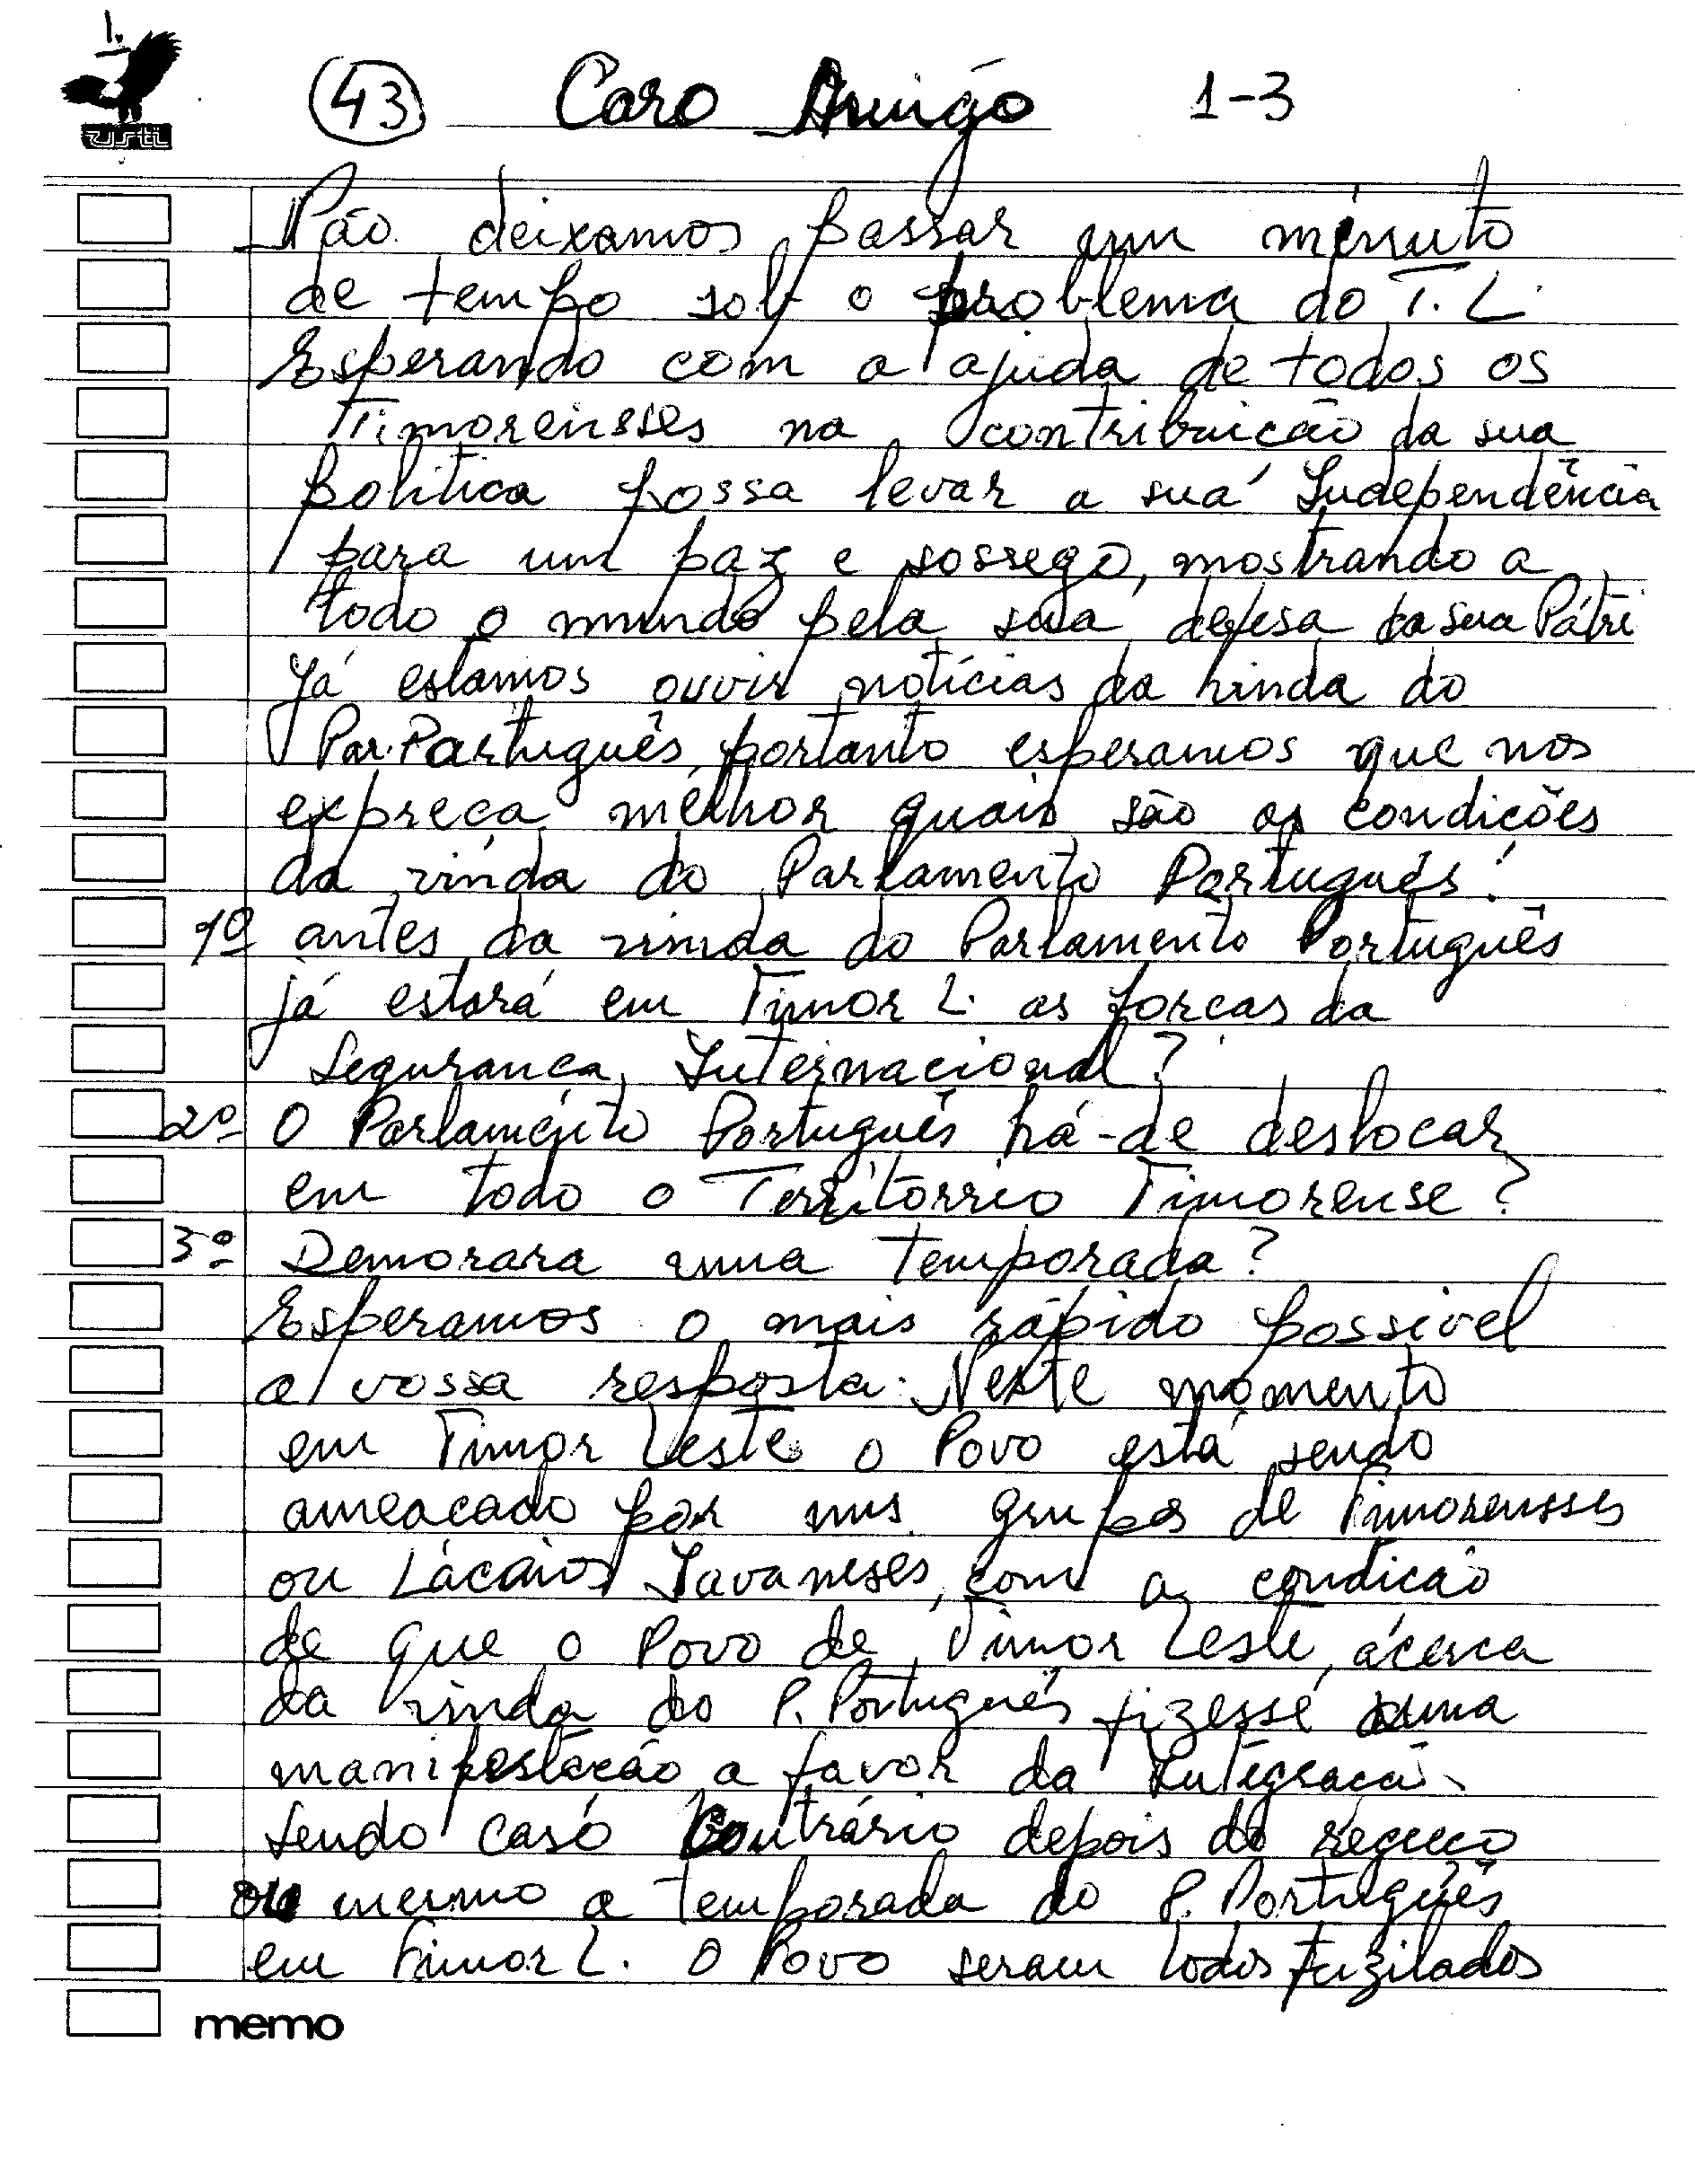 1.
43 Caro Amigo 1-3
Não deixamos passar um minuto
de tempo sob o problema do T. L.
Esperando com a ajuda de todos os
Timorensses na contribuicão da sua
Politica possa levar a sua Independência
para um paz e sossego, mostrando a
todo o mundo pela sua defesa da sua Pátri
Já estamos ouvir notícias da hinda do
Par. Português, portanto esperamos que nos
expreca melhor quais são as condicões
da vinda do Parlamento Português:
1º antes da vinda do Parlamento Português
já estará em Timor L. as forcas da
Seguranca Internacional?
2º O Parlamento Português há-de deslocar
em todo o Territorrio Timorense?
3º Demorara uma temporada?
Esperamos o mais rápido possivel
a vossa resposta. Neste momento
em Timor Leste o Povo está sendo
ameacado por uns grupos de Timorensses
ou Lácaios Javaneses, com a condicão
de que o Povo de Timor Leste, ácerca
da vinda do P. Português fizesse uma
manifestacão a favor da Integracão.
Sendo caso Contrário depois do
ou mesmo a temporada do P. Português
em Timor L. O Povo seram todos fuzilados
memo